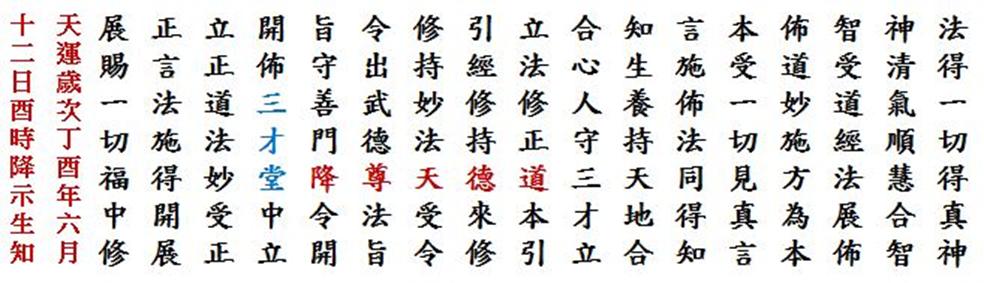 法得一切得真神
神清氣順慧合智
智受道經法展佈
佈道妙施方為本
本受一切見真言
言施佈法同得知
知生養持天地合
合心人守三才立
立法修正道本引
引經修持德來修
修持妙法天受令
令出武德尊法旨
旨守善門降令開
開佈三才堂中立
立正道法妙受正
正言法施得開展
展賜一切福中修
天運歲次丁酉年六月
十二日酉時降示生知